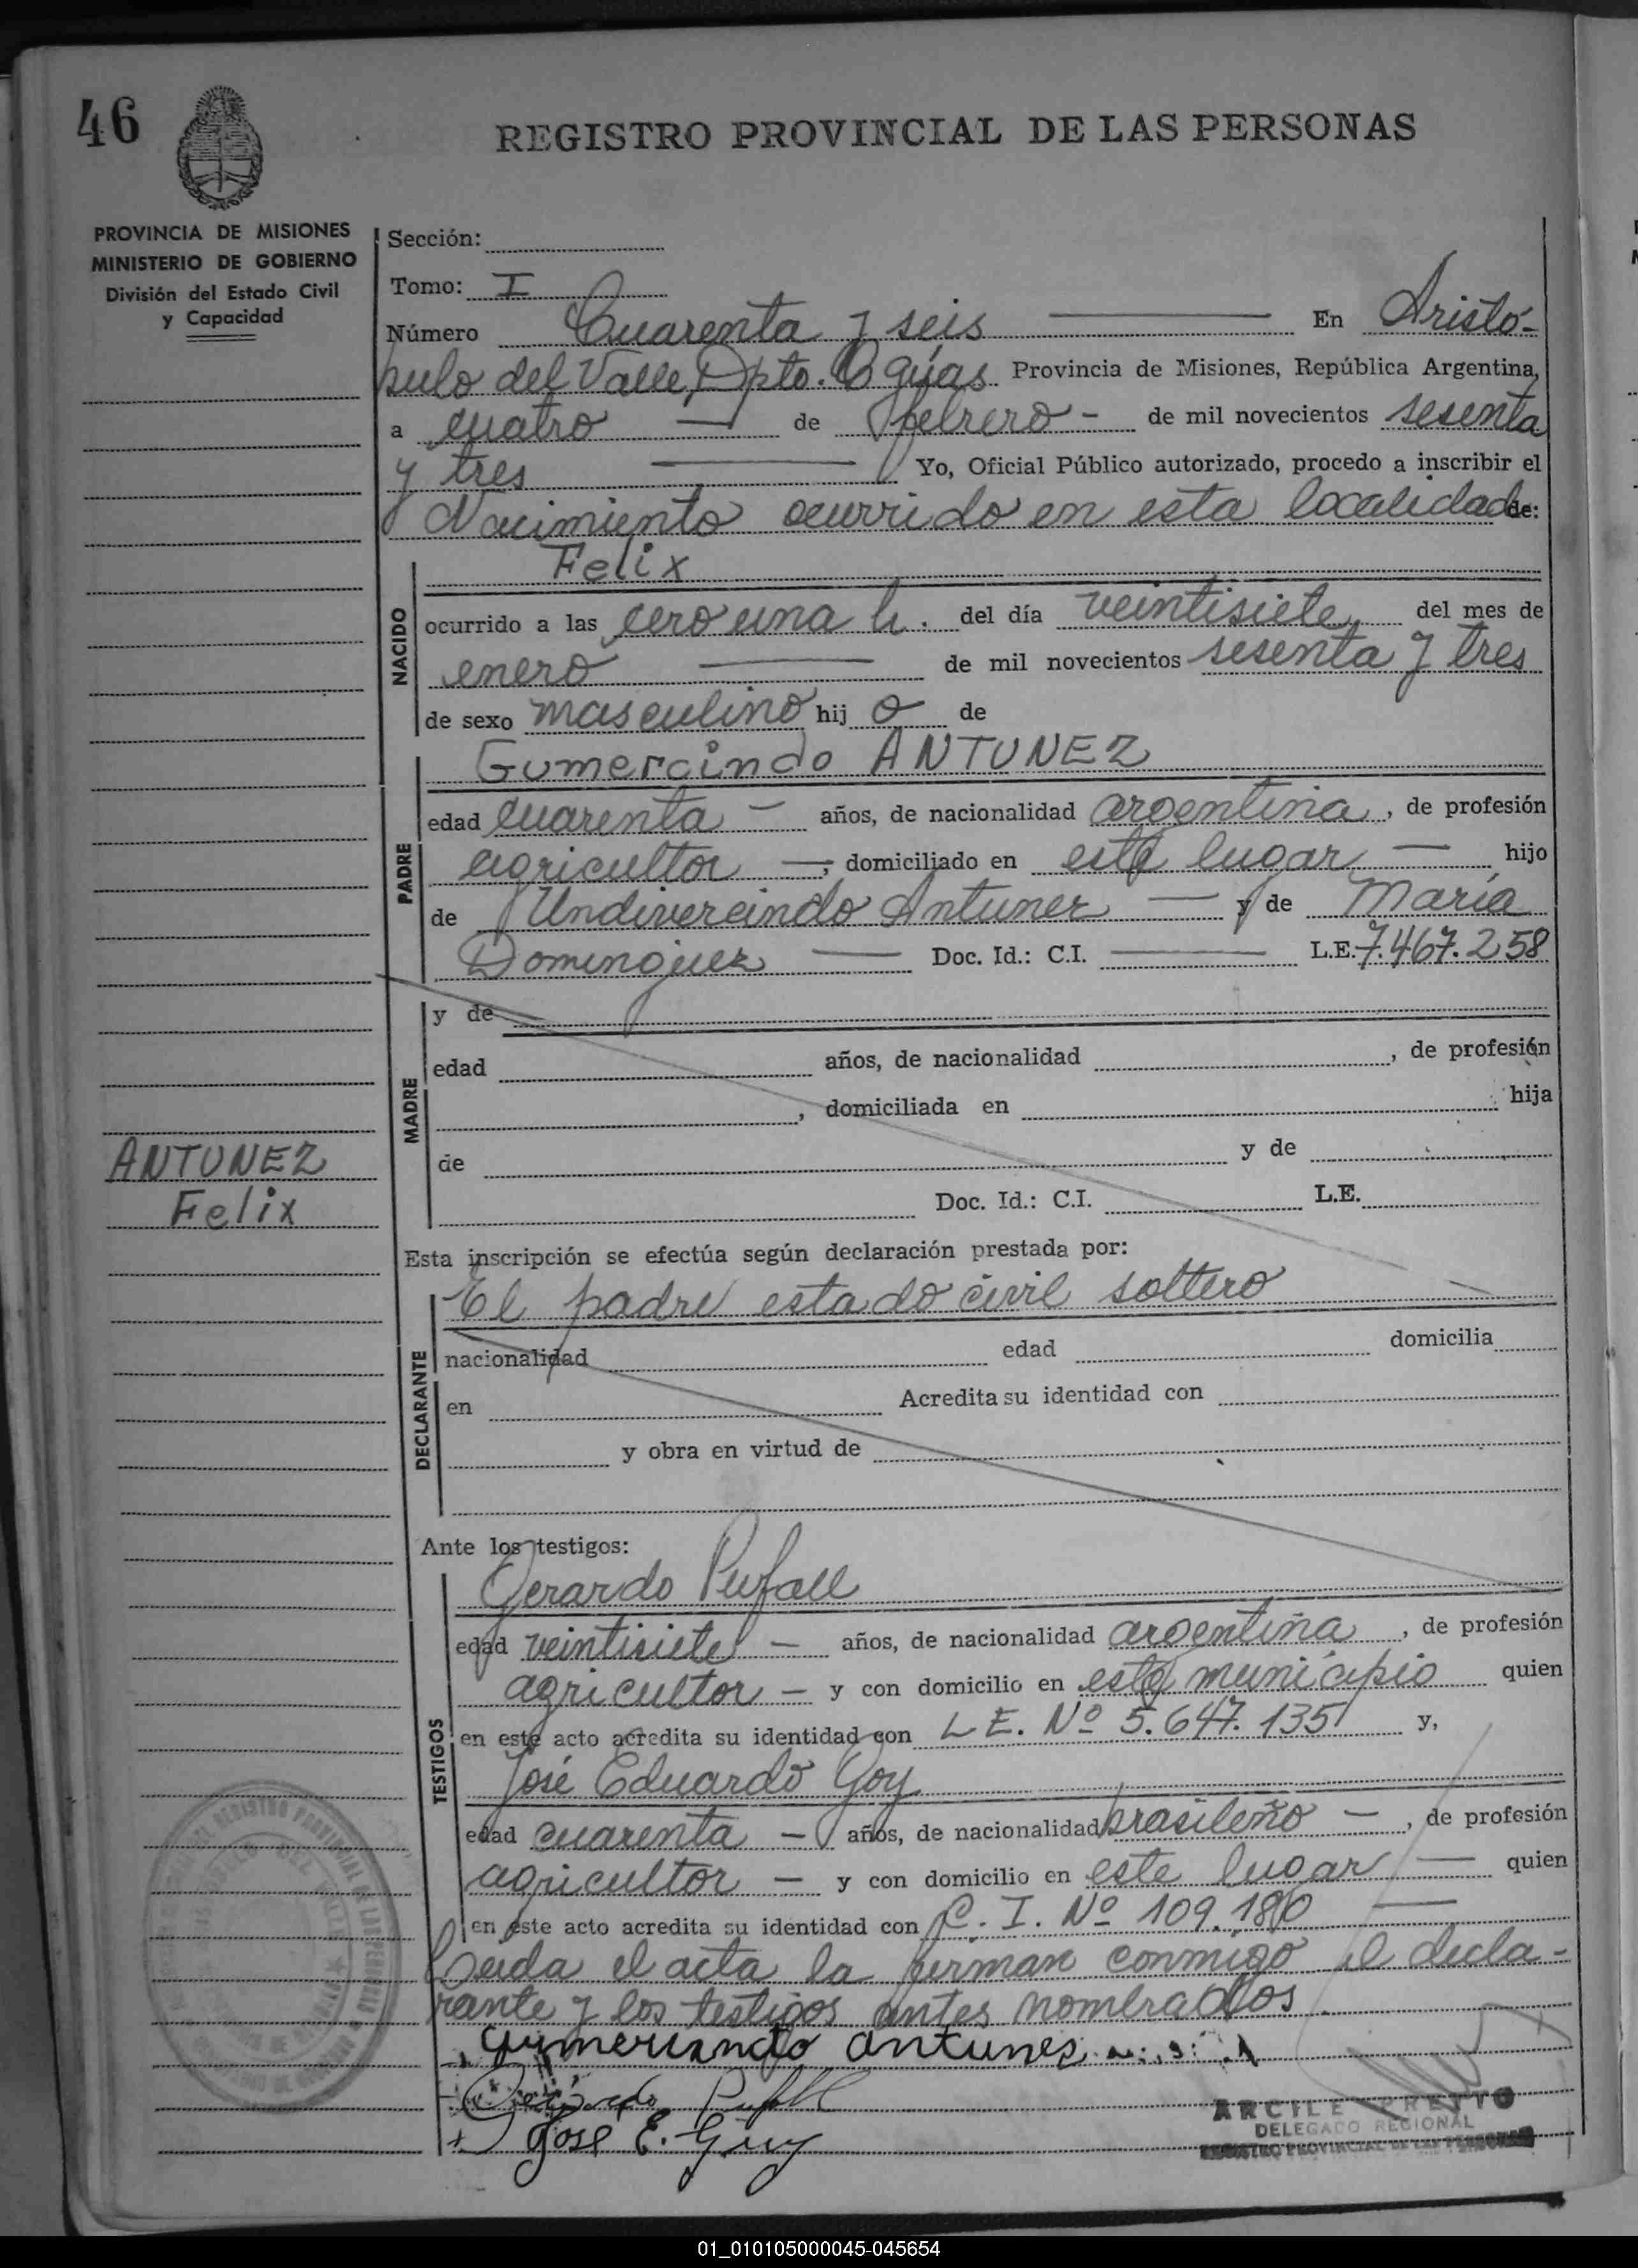 46
REGISTRO PROVINCIAL DE LAS PERSONAS
PROVINCIA DE MISIONES
MINISTERIO DE GOBIERNO
División del Estado Civil
y Capacidad
Sección:
Tomo: I
Número Cuarenta y seis En Aristó-
bulo del Valle, Dpto. Cgúas Provincia de Misiones, República Argentina,
a cuatro de febrero - de mil novecientos sesenta
y tres Yo, Oficial Público autorizado, procedo a inscribir el
Nacimiento ocurrido en esta localidad de:
Felix
NACIDO
ocurrido a las cero una h. del día veintisiete del mes de
enero de mil novecientos sesenta y tres
de sexo masculino hij o de
Gumercindo ANTUNEZ
PADRE
edad cuarenta - años, de nacionalidad argentina, de profesión
agricultor -, domiciliado en este lugar - hijo
de Undivercindo Antunez - y de María
Dominguez - Doc. Id.: C.I. L.E. 7.467.258
MADRE
y de
edad años, de nacionalidad , de profesión
, domiciliada en hija
de y de
Doc. Id.: C.I. L.E.
ANTUNEZ
Felix
Esta inscripción se efectúa según declaración prestada por:
El padre estado civil soltero
DECLARANTE
nacionalidad edad domicilia
en Acredita su identidad con
y obra en virtud de
Ante los testigos:
TESTIGOS
Gerardo Pufall
edad veintisiete - años, de nacionalidad argentina, de profesión
agricultor - y con domicilio en este municipio quien
en este acto acredita su identidad con L E. Nº 5.647.135 y,
José Eduardo Goy
edad cuarenta - años, de nacionalidad brasileño -, de profesión
agricultor - y con domicilio en este lugar - quien
en este acto acredita su identidad con C. I. Nº 109.180
Leida el acta la firman conmigo el decla-
rante y los testigos antes nombrados
gumercindo antunes
Gerardo Pufall
José E. Guy
ARCILE PRETTO
DELEGADO REGIONAL
REGISTRO PROVINCIAL DE LAS PERSONAS
01_010105000045-045654